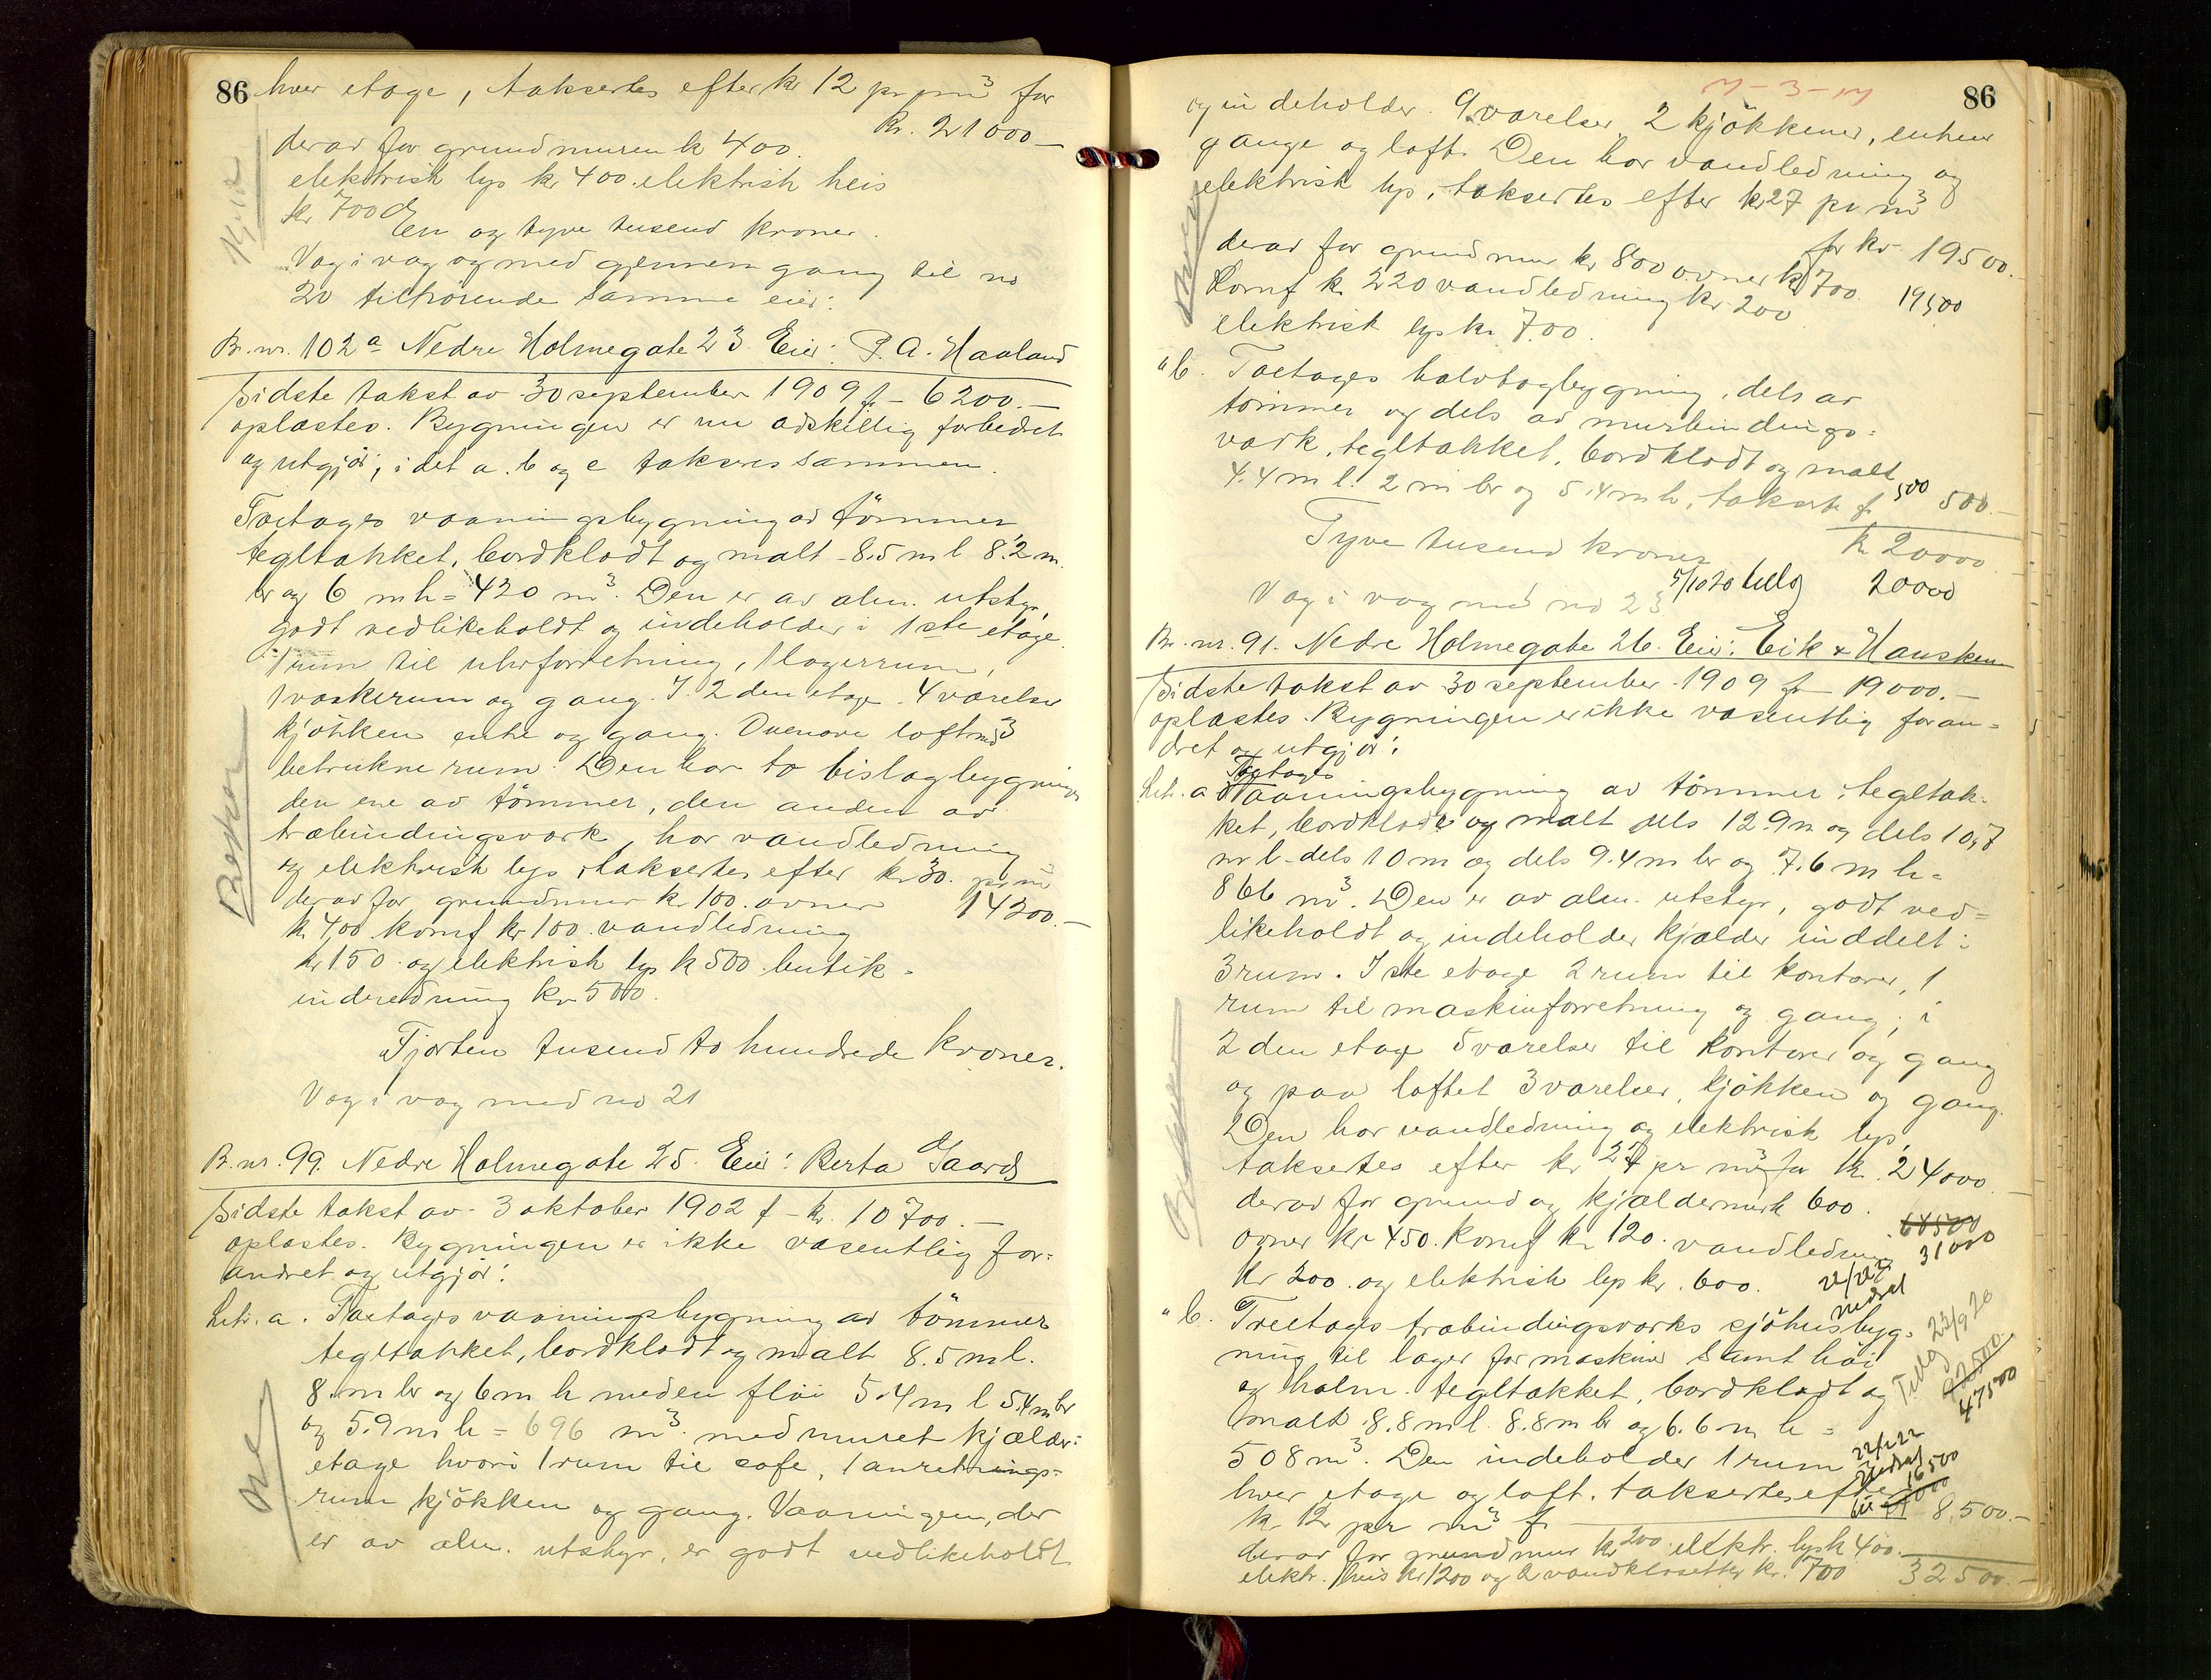 86
hver etage, taksertes efter kr 12 pr m³ for
Kr. 21000.—
derav for grundmuren k 400.
elektrisk lys kr 400. elektrisk heis
kr. 700
En og tyve tusend kroner.
Væg i væg og med gjennemgang til no
20 tilhørende samme eier:
B. nr. 102a Nedre Holmegate 23. Eier: P. A. Haaland
Sidste takst av 30 september 1909 f — 6200.—
oplæstes. Bygningen er nu adskillig forbedret
og utgjør, idet a. b og c takseres sammen.
Toetages vaaningsbygning av tömmer
tegltakket, bordklædt og malt - 8.5 m l 8.2 m
br og 6 m h = 420 m³. Den er av alm. utstyr,
godt vedlikeholdt og indeholder i 1ste etage
1 rum til uhrforretning, 1 lagerrum,
1 vaskerum og gang. I 2den etage 4 værelser
kjökken ente og gang. Ovenover loft med 3
betrukne rum. Den har to bislagbygninger
den ene av tömmer, den anden av
træbindingsværk, har vandledning
og elektrisk lys, taksertes efter kr 30. pr m³
derav for grundmur kr 100. ovner 14200.—
kr 400 komf kr 100. vandledning
kr 150. og elektrisk lys k 500. butik=
indredning kr 500.
Fjorten tusend to hundrede kroner.
Væg i væg med no 21
B. nr. 99. Nedre Holmegate 25. Eier: Berta Gaard
Sidste takst av 3 oktober 1902 f — kr. 10700.—
oplæstes. Bygningen er ikke væsentlig for=
andret og utgjør:
Litr. a. Toetages vaaningsbygning av tömmer
tegltakket, bordklædt og malt 8.5 m l.
8. m br og 6 m h med en flöi 5.4 m l 5.4 m br
og 5.9 m h = 696 m³. med muret kjælder=
etage hvori 1 rum til cafe, 1 anretnings=
rum kjökken og gang. Vaaningen, der
er av alm. utstyr, er godt vedlikeholdt
86
og indeholder 9 værelser, 2 kjökkener, entreer
gange og loft. Den har vandledning og
elektrisk lys, taksertes efter kr 27 pr m³
for kr 19500.—
derav for grundmur kr 800 ovner kr 700. 19500
Komf k 220 vandledning kr 200
elektrisk lys kr 700.
" b. Toetages halvtagbygning, dels av
tömmer og dels av murbindings=
værk, tegltakket, bordklædt og malt
4.4 m l. 2 m br og 5.4 m h, taksert f 500 500.—
Tyve tusend kroner kr 20000
Væg i væg med no 23 5/10 20 20000
Br. nr. 91. Nedre Holmegate 26. Eier: Eik & Hausken
Sidste takst av 30 september 1909 f — 19000.—
oplæstes. Bygningen er ikke væsentlig foran=
dret og utgjør:
Toetages
Litr. a Vaaningsbygning av tömmer, tegltak=
ket, bordklædt og malt dels 12.9 m og dels 10,7
m l - dels 10 m og dels 9.4 m br og 7.6 m h =
866 m³. Den er av alm. utstyr, godt ved=
likeholdt og indeholder kjælder inddelt i
3 rum. I ste etage 2 rum til kontorer, 1
rum til maskinforretning og gang, i
2den etage 5 værelser til kontorer og gang
og paa loftet 3 værelser, kjökken og gang.
Den har vandledning og elektrisk lys,
taksertes efter kr 27 pr m³ for kr. 24000
derav for grund og kjældermur k 600.
68500
ovner kr 450. komf kr 120. vandledning 31000
kr 200. og elektrisk lys kr. 600. nedsat
" b. Treetages træbindingsværks sjöhusbyg=
ning til lager for maskiner samt höi
og halm. tegltakket, bordklædt og
Tillg 22/9 20
47500
malt 8.8 m l. 8.8 m br og 6.6 m h =
508 m³. Den indeholder 1 rum
22/2 22
nedsat
16500
hver etage og loft. taksertes efter
kr 12 pr m³ f 8,500.—
derav for grundmur kr 200. elektr. lys k 400.
elektr. heis kr 1200 og 2 vandklosetter kr. 700 32500.—